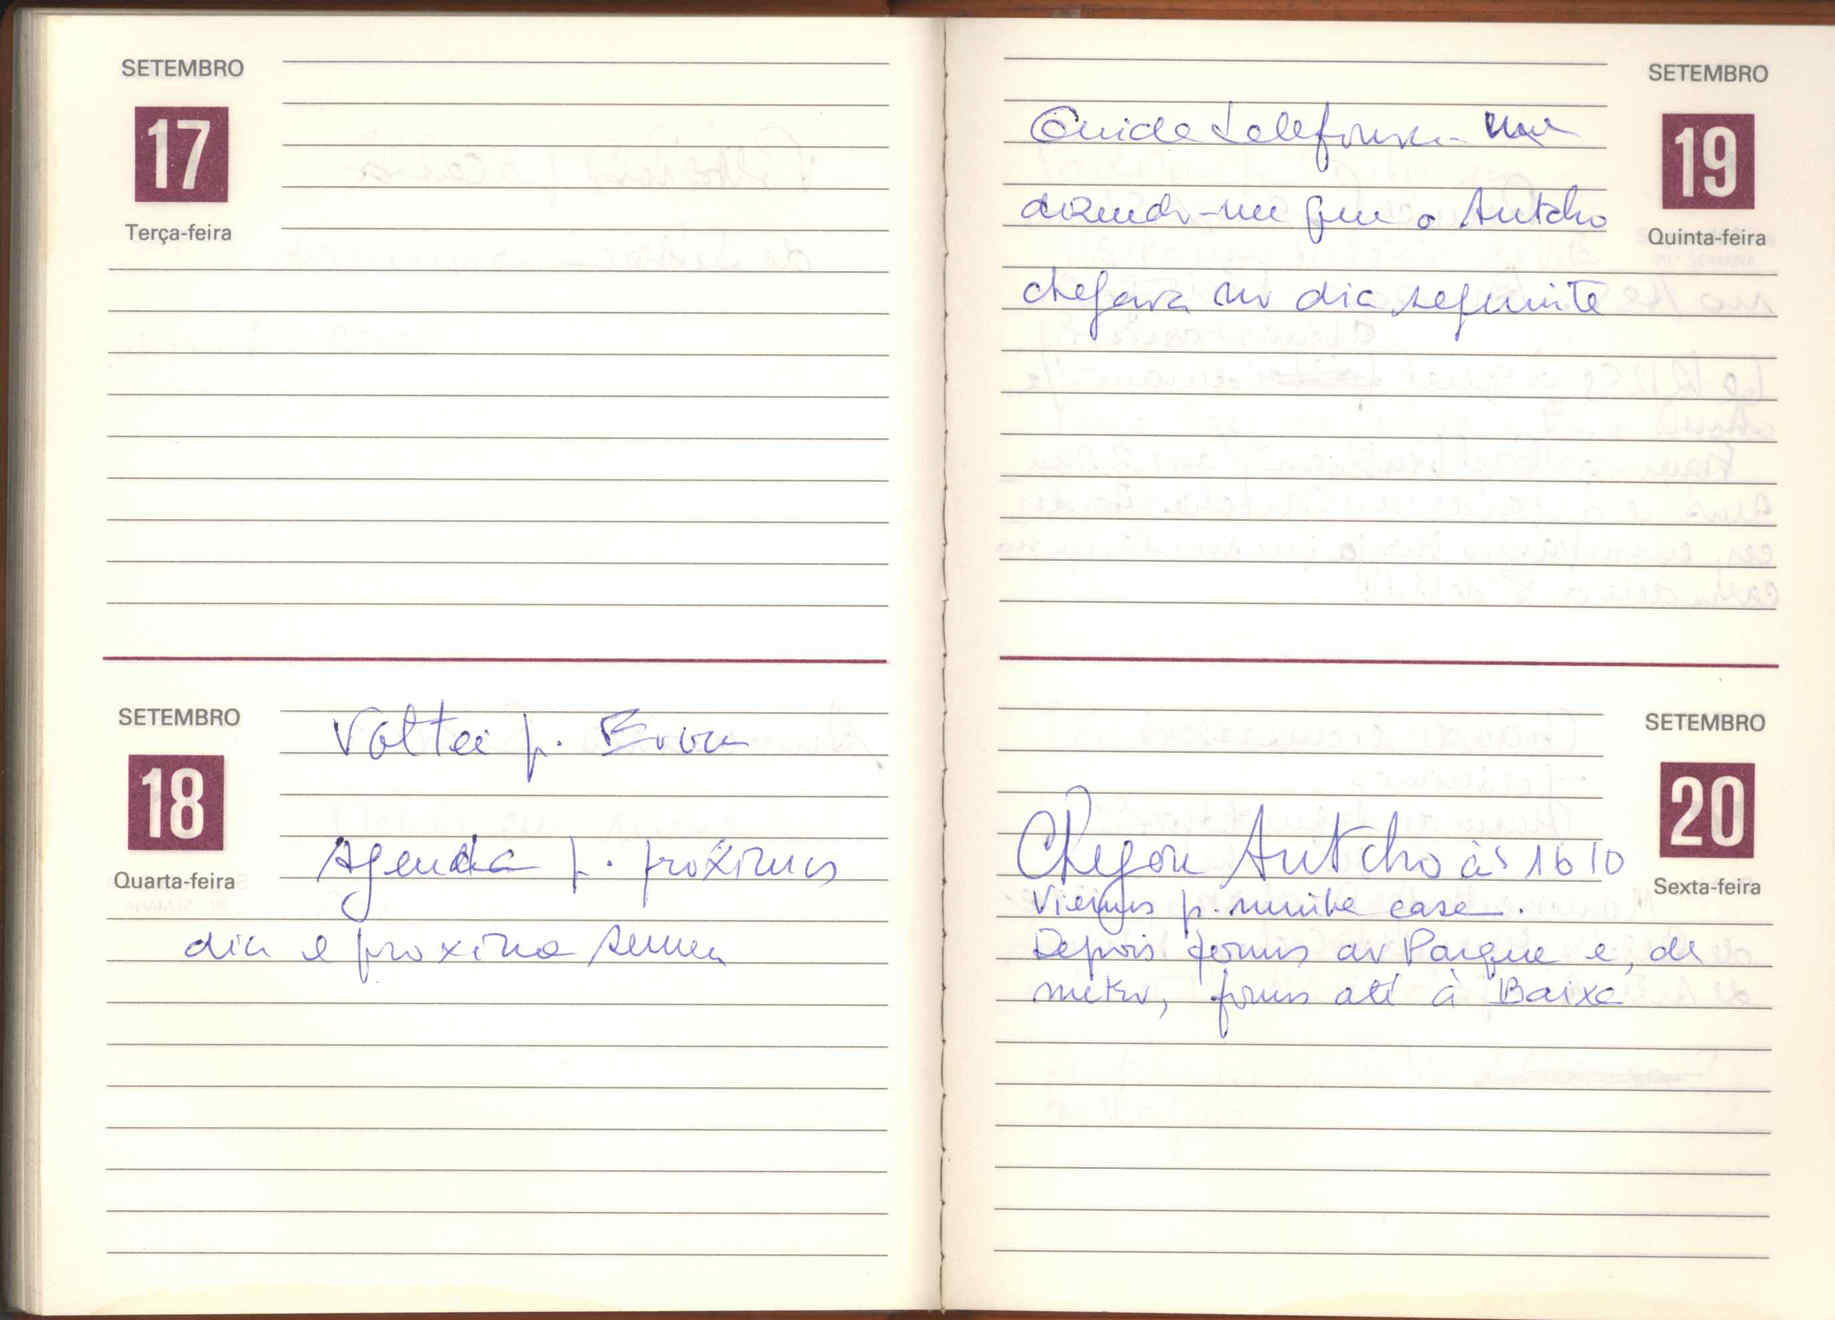 SETEMBRO
17
Terça-feira
SETEMBRO
18
Quarta-feira
Voltei p.
Agenda p. próximos
dia e proxima
SETEMBRO
19
Quinta-feira
telefonou-me
dizendo-me que o Antcho
chegava no dia seguinte
SETEMBRO
20
Sexta-feira
Chegou Antcho às 16 10
Viemos p. minha casa.
Depois fomos ao Parque e, de
metro, fomos até à Baixa